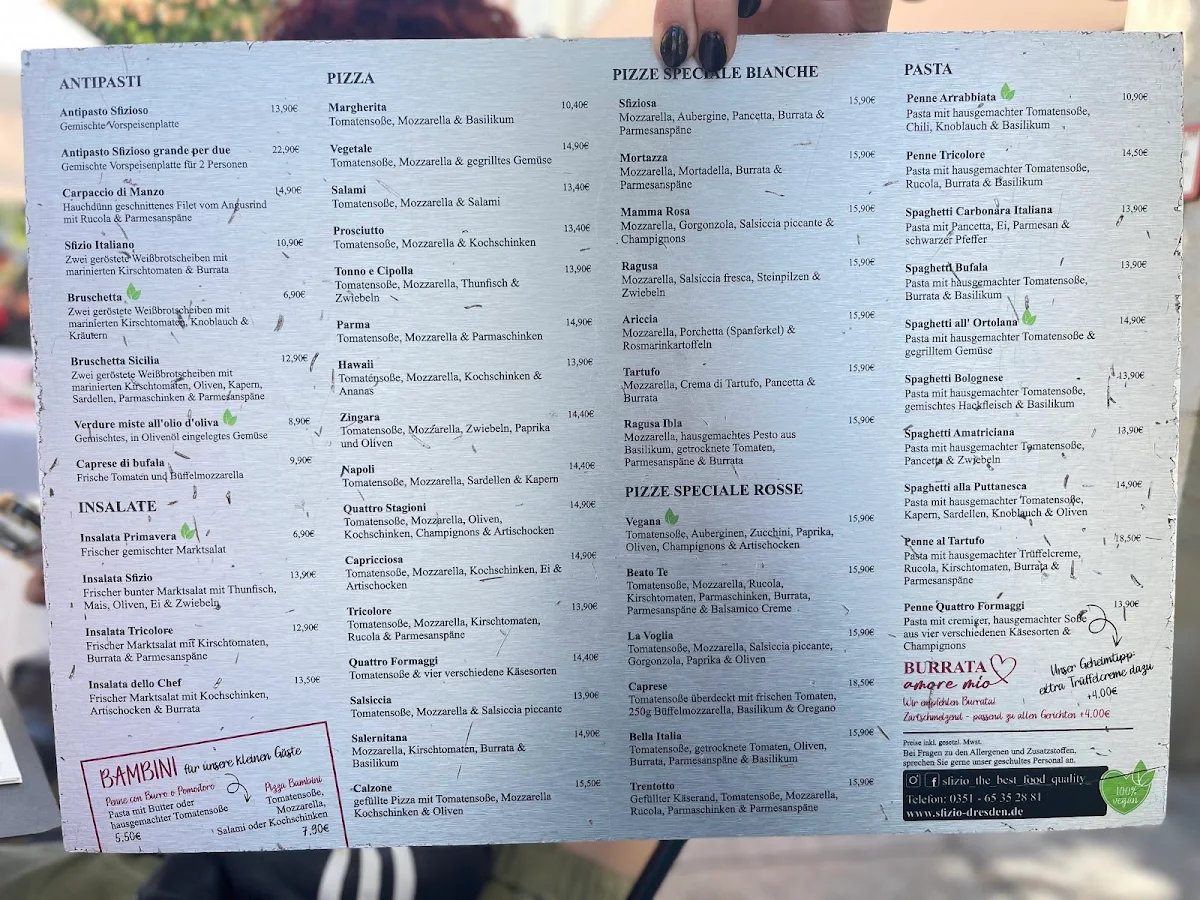 ANTIPASTI
Antipasto Sfizioso 13,90€
Gemischte Vorspeisenplatte
Antipasto Sfizioso grande per due 22,90€
Gemischte Vorspeisenplatte für 2 Personen
Carpaccio di Manzo 14,90€
Hauchdünn geschnittenes Filet vom Angusrind
mit Rucola & Parmesanspäne
Sfizio Italiano 10,90€
Zwei geröstete Weißbrotscheiben mit
marinierten Kirschtomaten & Burrata
Bruschetta 6,90€
Zwei geröstete Weißbrotscheiben mit
marinierten Kirschtomaten, Knoblauch &
Kräutern
Bruschetta Sicilia 12,90€
Zwei geröstete Weißbrotscheiben mit
marinierten Kirschtomaten, Oliven, Kapern,
Sardellen, Parmaschinken & Parmesanspäne
Verdure miste all'olio d'oliva 8,90€
Gemischtes, in Olivenöl eingelegtes Gemüse
Caprese di bufala 9,90€
Frische Tomaten und Büffelmozzarella
INSALATE
Insalata Primavera 6,90€
Frischer gemischter Marktsalat
Insalata Sfizio 13,90€
Frischer bunter Marktsalat mit Thunfisch,
Mais, Oliven, Ei & Zwiebeln
Insalata Tricolore 12,90€
Frischer Marktsalat mit Kirschtomaten,
Burrata & Parmesanspäne
Insalata dello Chef 13,50€
Frischer Marktsalat mit Kochschinken,
Artischocken & Burrata
BAMBINI für unsere kleinen Gäste
Penne con Burro o Pomodoro
Pasta mit Butter oder
hausgemachter Tomatensoße
5,50€
Pizza Bambini
Tomatensoße,
Mozzarella,
Salami oder Kochschinken
7,90€
PIZZA
Margherita 10,40€
Tomatensoße, Mozzarella & Basilikum
Vegetale 14,90€
Tomatensoße, Mozzarella & gegrilltes Gemüse
Salami 13,40€
Tomatensoße, Mozzarella & Salami
Prosciutto 13,40€
Tomatensoße, Mozzarella & Kochschinken
Tonno e Cipolla 13,90€
Tomatensoße, Mozzarella, Thunfisch &
Zwiebeln
Parma 14,90€
Tomatensoße, Mozzarella & Parmaschinken
Hawaii 13,90€
Tomatensoße, Mozzarella, Kochschinken &
Ananas
Zingara 14,40€
Tomatensoße, Mozzarella, Zwiebeln, Paprika
und Oliven
Napoli 14,40€
Tomatensoße, Mozzarella, Sardellen & Kapern
Quattro Stagioni 14,90€
Tomatensoße, Mozzarella, Oliven,
Kochschinken, Champignons & Artischocken
Capricciosa 14,90€
Tomatensoße, Mozzarella, Kochschinken, Ei &
Artischocken
Tricolore 13,90€
Tomatensoße, Mozzarella, Kirschtomaten,
Rucola & Parmesanspäne
Quattro Formaggi 14,40€
Tomatensoße & vier verschiedene Käsesorten
Salsiccia 13,90€
Tomatensoße, Mozzarella & Salsiccia piccante
Salernitana 14,90€
Mozzarella, Kirschtomaten, Burrata &
Basilikum
Calzone 15,50€
gefüllte Pizza mit Tomatensoße, Mozzarella
Kochschinken & Oliven
PIZZE SPECIALE BIANCHE
Sfiziosa 15,90€
Mozzarella, Aubergine, Pancetta, Burrata &
Parmesanspäne
Mortazza 15,90€
Mozzarella, Mortadella, Burrata &
Parmesanspäne
Mamma Rosa 15,90€
Mozzarella, Gorgonzola, Salsiccia piccante &
Champignons
Ragusa 15,90€
Mozzarella, Salsiccia fresca, Steinpilzen &
Zwiebeln
Ariccia 15,90€
Mozzarella, Porchetta (Spanferkel) &
Rosmarinkartoffeln
Tartufo 15,90€
Mozzarella, Crema di Tartufo, Pancetta &
Burrata
Ragusa Ibla 15,90€
Mozzarella, hausgemachtes Pesto aus
Basilikum, getrocknete Tomaten,
Parmesanspäne & Burrata
PIZZE SPECIALE ROSSE
Vegana 15,90€
Tomatensoße, Auberginen, Zucchini, Paprika,
Oliven, Champignons & Artischocken
Beato Te 15,90€
Tomatensoße, Mozzarella, Rucola,
Kirschtomaten, Parmaschinken, Burrata,
Parmesanspäne & Balsamico Creme
La Voglia 15,90€
Tomatensoße, Mozzarella, Salsiccia piccante,
Gorgonzola, Paprika & Oliven
Caprese 18,50€
Tomatensoße überdeckt mit frischen Tomaten,
250g Büffelmozzarella, Basilikum & Oregano
Bella Italia 15,90€
Tomatensoße, getrocknete Tomaten, Oliven,
Burrata, Parmesanspäne & Basilikum
Trentotto 15,90€
Gefüllter Käserand, Tomatensoße, Mozzarella,
Rucola, Parmaschinken & Parmesanspäne
PASTA
Penne Arrabbiata 10,90€
Pasta mit hausgemachter Tomatensoße,
Chili, Knoblauch & Basilikum
Penne Tricolore 14,50€
Pasta mit hausgemachter Tomatensoße,
Rucola, Burrata & Basilikum
Spaghetti Carbonara Italiana 13,90€
Pasta mit Pancetta, Ei, Parmesan &
schwarzer Pfeffer
Spaghetti Bufala 13,90€
Pasta mit hausgemachter Tomatensoße,
Burrata & Basilikum
Spaghetti all' Ortolana 14,90€
Pasta mit hausgemachter Tomatensoße &
gegrilltem Gemüse
Spaghetti Bolognese 13,90€
Pasta mit hausgemachter Tomatensoße,
gemischtes Hackfleisch & Basilikum
Spaghetti Amatriciana 13,90€
Pasta mit hausgemachter Tomatensoße,
Pancetta & Zwiebeln
Spaghetti alla Puttanesca 14,90€
Pasta mit hausgemachter Tomatensoße,
Kapern, Sardellen, Knoblauch & Oliven
Penne al Tartufo 18,50€
Pasta mit hausgemachter Trüffelcreme,
Rucola, Kirschtomaten, Burrata &
Parmesanspäne
Penne Quattro Formaggi 13,90€
Pasta mit cremiger, hausgemachter Soße
aus vier verschiedenen Käsesorten &
Champignons
Unser Geheimtipp:
extra Trüffelcreme dazu
+4,00€
BURRATA
amore mio
Wir empfehlen Burrata!
Zartschmelzend - passend zu allen Gerichten +4,00€
Preise inkl. gesetzl. Mwst.
Bei Fragen zu den Allergenen und Zusatzstoffen,
sprechen Sie gerne unser geschultes Personal an.
sfizio_the_best_food_quality
Telefon: 0351 - 65 35 28 81
www.sfizio-dresden.de
100%
vegan